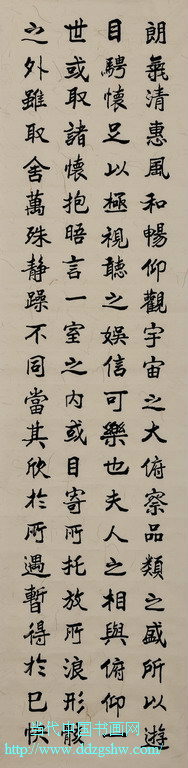 朗氣清惠風和暢仰觀宇宙之大俯察品類之盛所以遊
目騁懷足以極視聽之娛信可樂也夫人之相與俯仰一
世或取諸懷抱晤言一室之内或因寄所托放所浪形骸
之外雖取舍萬殊静躁不同當其欣於所遇暫得於己快
当代中国书画网
http://www.ddzgshw.com/